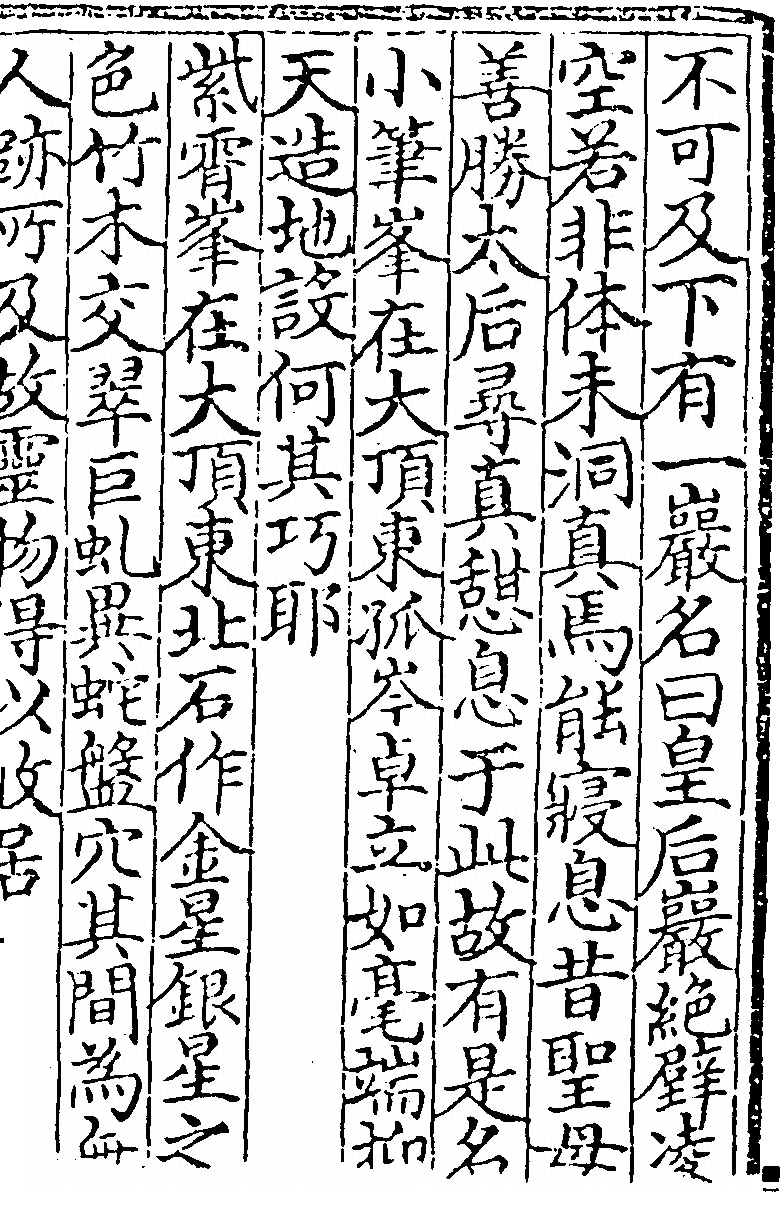 不可及下有一巖名曰皇后巖絶壁凌
空若非体未洞真焉能寢息昔聖母
善勝太后尋真憇息于此故有是名
小筆峯在大頂東孤岑卓立如毫端抑
天造地設何其巧耶
紫霄峯在大頂東北石作金星銀星之
色竹木交翠巨虬異蛇盤穴其間為無
人跡所及故靈物得以收居